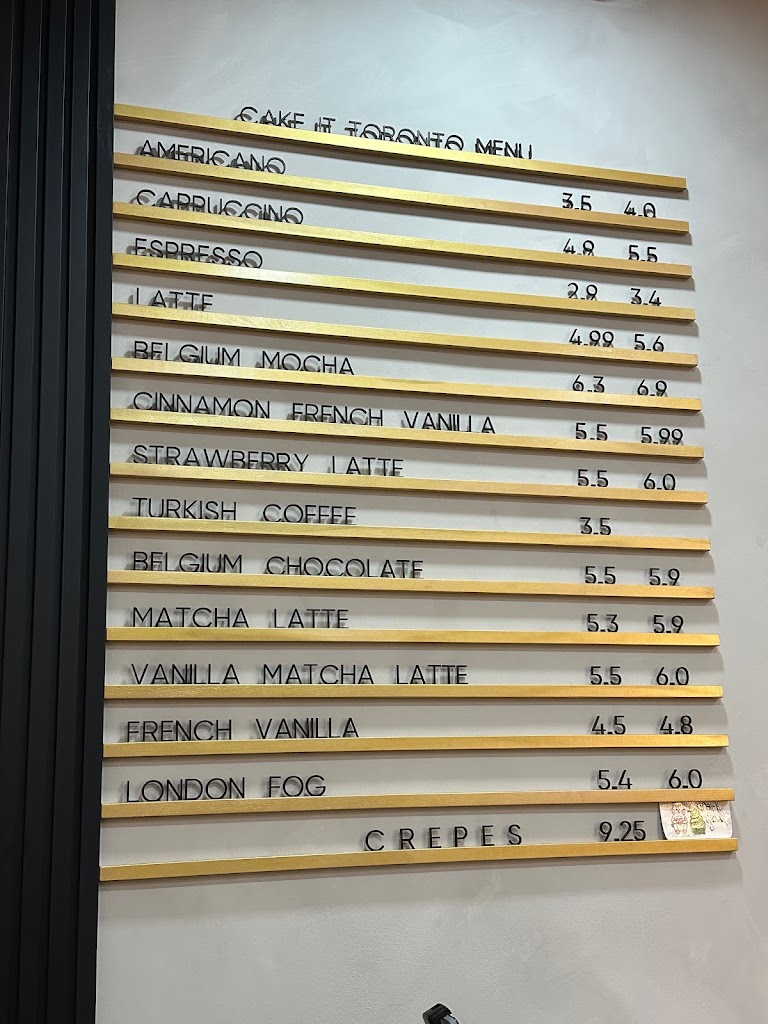 CAKE IT TORONTO MENU
AMERICANO 3.5 4.0
CAPPUCCINO 4.8 5.5
ESPRESSO 2.9 3.4
LATTE 4.99 5.6
BELGIUM MOCHA 6.3 6.9
CINNAMON FRENCH VANILLA 5.5 5.99
STRAWBERRY LATTE 5.5 6.0
TURKISH COFFEE 3.5
BELGIUM CHOCOLATE 5.5 5.9
MATCHA LATTE 5.3 5.9
VANILLA MATCHA LATTE 5.5 6.0
FRENCH VANILLA 4.5 4.8
LONDON FOG 5.4 6.0
CREPES 9.25